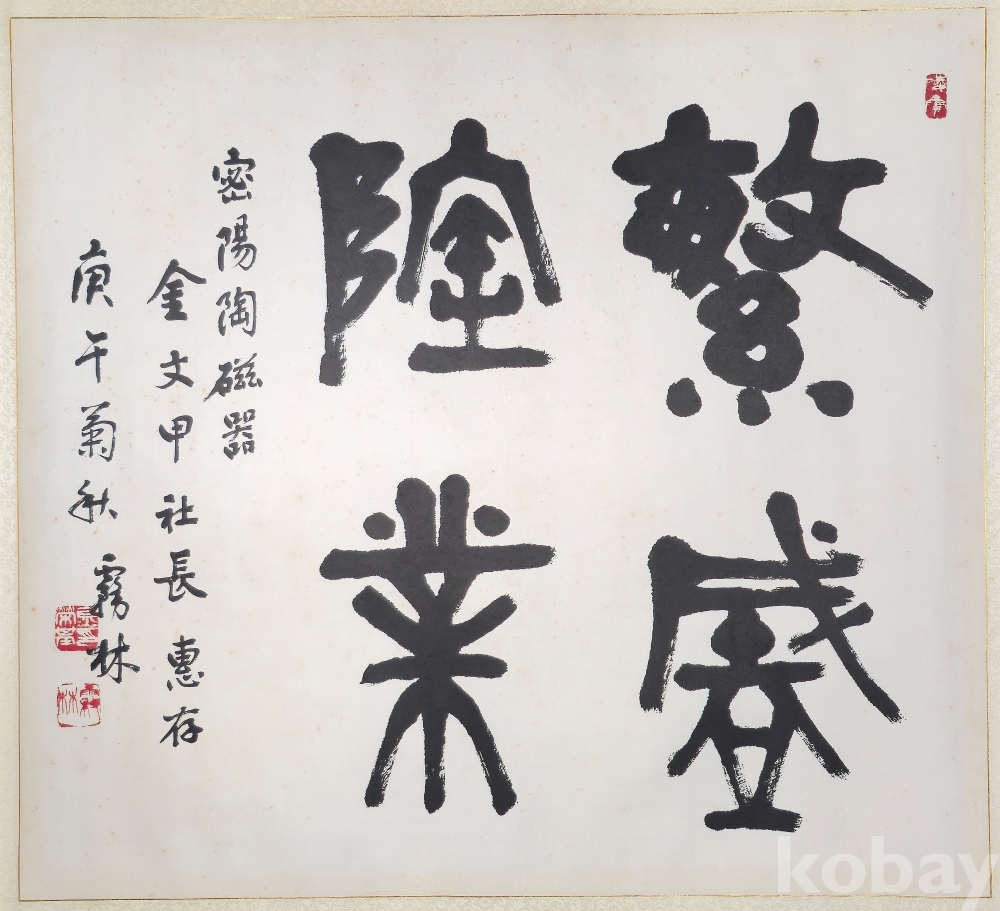 繁盛
陶業
密陽陶磁器
金文甲社長 惠存
庚午菊秋 霧林
kobay